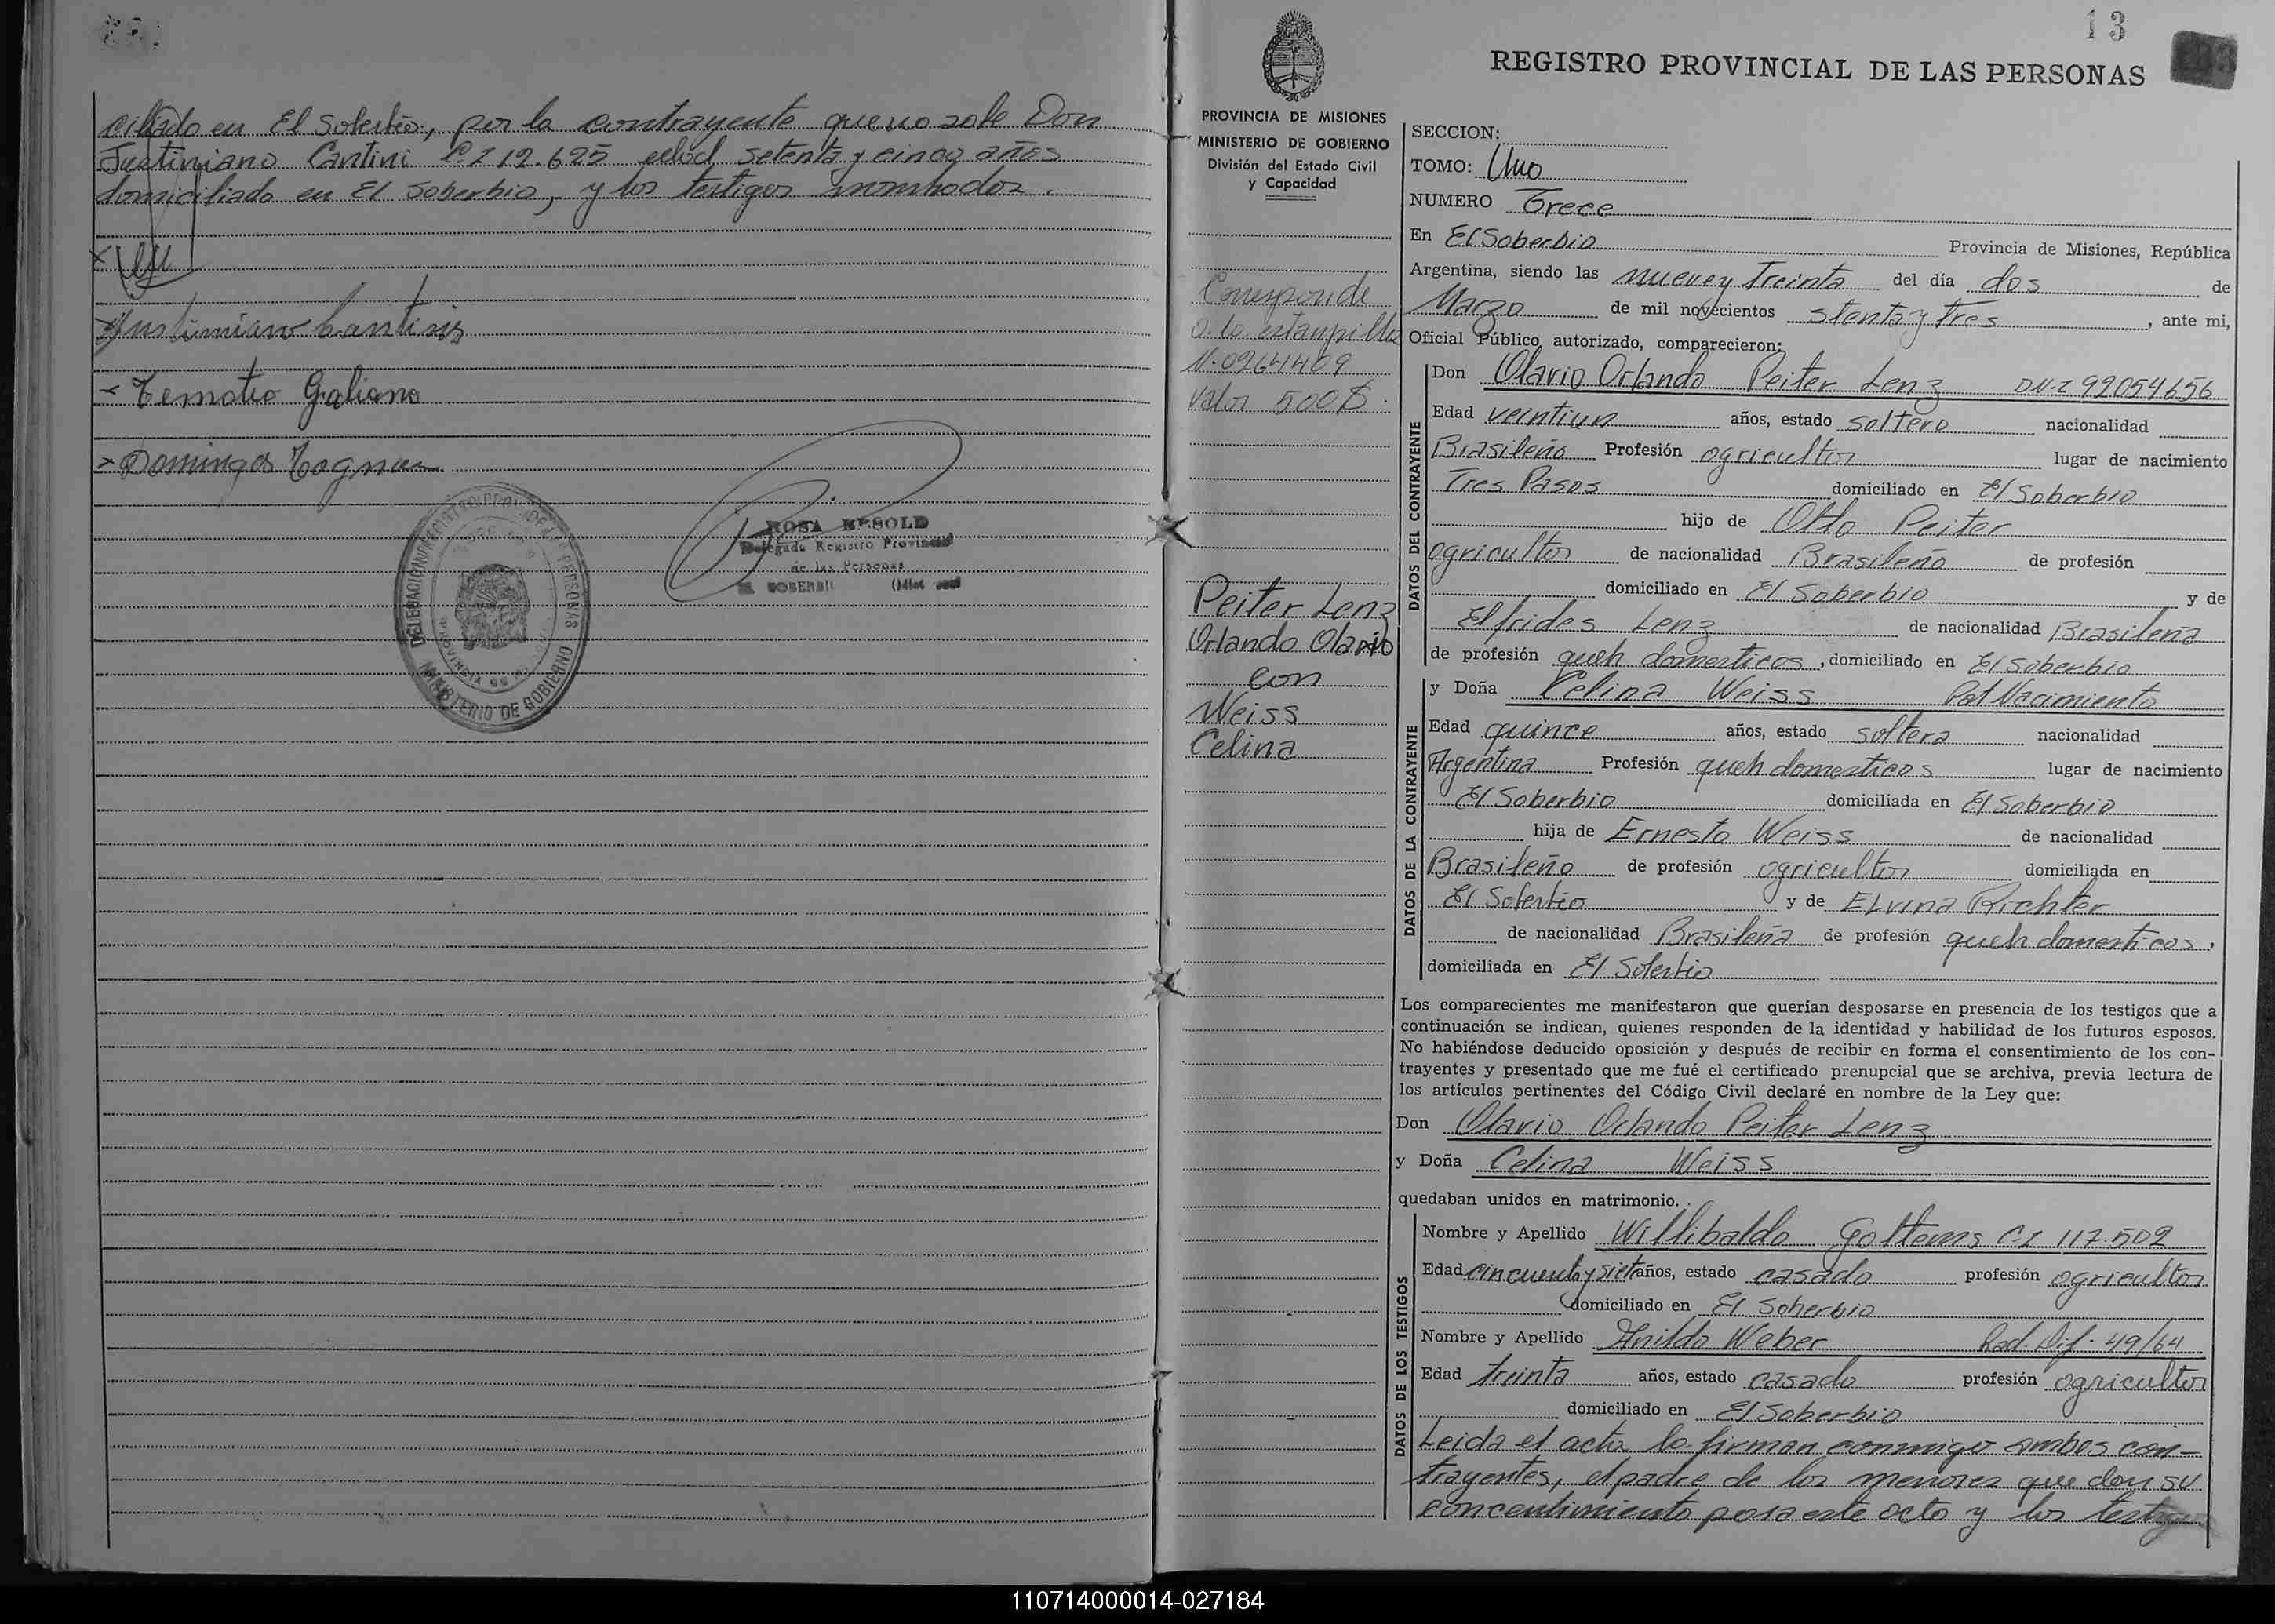 ciliado en El Soberbio, por la contrayente que no sabe Don
Justiniano Cantini C.I 12.625 edad setenta y cinco años
domiciliado en El Soberbio, y los testigos nombrados.
Justiniano Cantinis
Galiano
Domingos
ROSA BESOLD
Delegada Registro Provincial
de las Personas
EL SOBERBIO
DELEGACION REGISTRO PROV. DE LAS PERSONAS
MINISTERIO DE GOBIERNO
13
REGISTRO PROVINCIAL DE LAS PERSONAS
PROVINCIA DE MISIONES
MINISTERIO DE GOBIERNO
División del Estado Civil
y Capacidad
Corresponde
a la estampilla
N. 0264409
Valor 500$.
Peiter Lenz
Orlando Olavio
con
Weiss
Celina
SECCION:
TOMO: Uno
NUMERO Trece
En El Soberbio Provincia de Misiones, República
Argentina, siendo las nueve y Treinta del día dos de
Marzo de mil novecientos stenta y tres, ante mi,
Oficial Público autorizado, comparecieron:
DATOS DEL CONTRAYENTE
Don Olavio Orlando Peiter Lenz DN.I 92054656
Edad veintiun años, estado soltero nacionalidad
Brasileño Profesión agricultor lugar de nacimiento
Tres Pasos domiciliado en El Soberbio
hijo de Otto Peiter
agricultor de nacionalidad Brasileño de profesión
domiciliado en El Soberbio y de
Elfrides Lenz de nacionalidad Brasileña
de profesión queh domesticos, domiciliado en El Soberbio
DATOS DE LA CONTRAYENTE
y Doña Celina Weiss Nacimiento
Edad quince años, estado soltera nacionalidad
Argentina Profesión queh domesticos lugar de nacimiento
El Soberbio domiciliada en El Soberbio
hija de Ernesto Weiss de nacionalidad
Brasileño de profesión agricultor domiciliada en
El Soberbio y de Elvina Richter
de nacionalidad Brasileña de profesión queh domesticos,
domiciliada en El Soberbio
Los comparecientes me manifestaron que querían desposarse en presencia de los testigos que a
continuación se indican, quienes responden de la identidad y habilidad de los futuros esposos.
No habiéndose deducido oposición y después de recibir en forma el consentimiento de los con-
trayentes y presentado que me fué el certificado prenupcial que se archiva, previa lectura de
los artículos pertinentes del Código Civil declaré en nombre de la Ley que:
Don Olavio Orlando Peiter Lenz
y Doña Celina Weiss
quedaban unidos en matrimonio.
DATOS DE LOS TESTIGOS
Nombre y Apellido Willibaldo Gottems C.I 117.502
Edad cincuenta y siete años, estado casado profesión agricultor
domiciliado en El Soberbio
Nombre y Apellido Anildo Weber Rad. Dif. 49/64
Edad treinta años, estado casado profesión agricultor
domiciliado en El Soberbio
Leida el acta la firman conmigo ambos con-
trayentes, el padre de los menores que dan su
concentimiento para este acto y los testigos
110714000014-027184